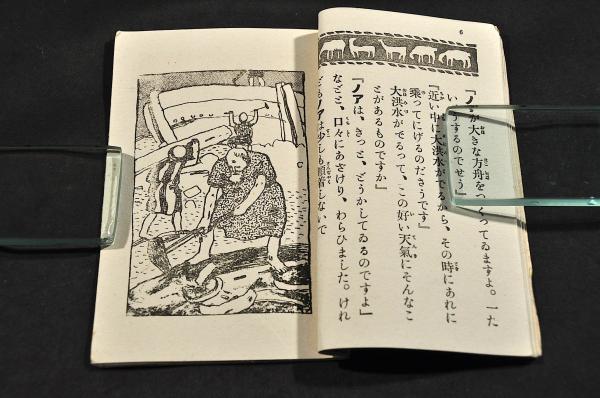 6
「ノアが大きな方舟をつくってゐますよ。一た
いどうするのでせう」
「近い中に大洪水がでるから、その時にあれに
乗ってにげるのださうです」
大洪水がでるって、この好い天氣にそんなこ
とがあるものですか」
「ノアは、きっと、どうかしてゐるのですよ」
などと、口々にあざけり、わらひました。けれ
どもノアは少しも頓着しないで